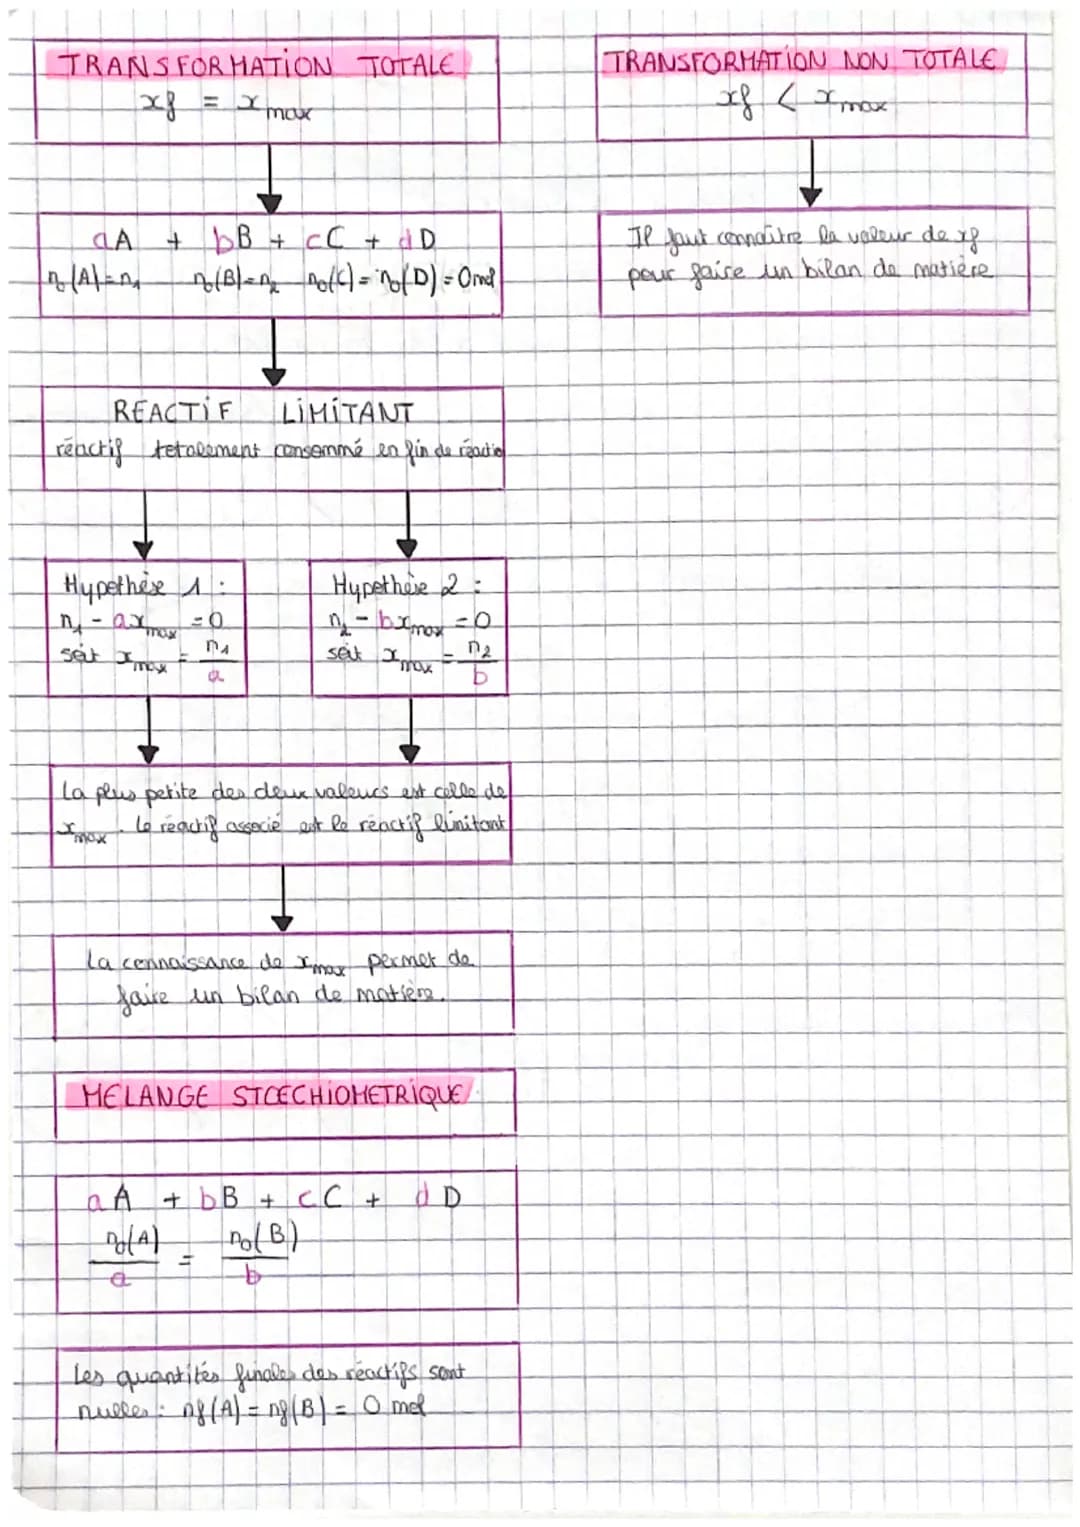 TRANSFORMATION TOTALE
xf = xmax
aA + bB + cC + dD
n₀(A)=n₁ n₀(B)=n₂ n₀(C)=n₀(D)=0mol
REACTIF LIMITANT
réactif totalement consommé en fin de réaction
Hypothèse 1 :
n₁ - axmax = 0
soit xmax = n₁/a
Hypothèse 2 :
n₂ - bxmax = 0
soit xmax = n₂/b
La plus petite des deux valeurs est celle de
xmax. Le réactif associé est le réactif limitant
La connaissance de xmax permet de
faire un bilan de matière.
MELANGE STŒCHIOMETRIQUE
aA + bB + cC + dD
n₀(A)/a = n₀(B)/b
Les quantités finales des réactifs sont
nulles : nf(A) = nf(B) = 0 mol
TRANSFORMATION NON TOTALE
xf < xmax
Il faut connaître la valeur de xf
pour faire un bilan de matière